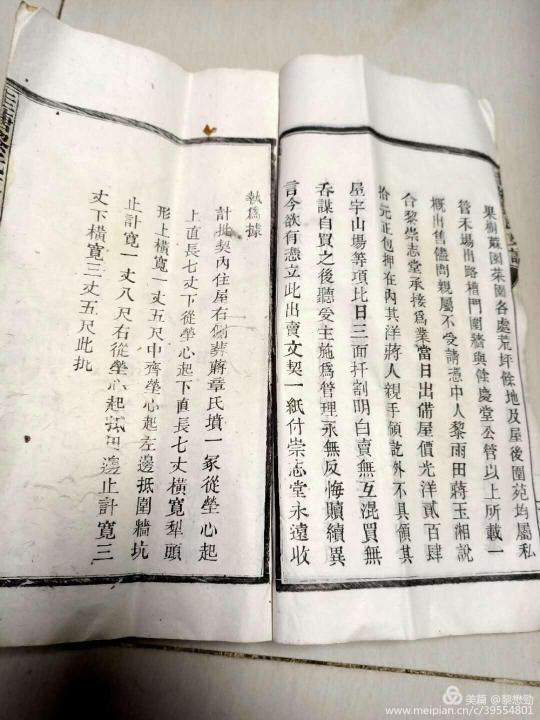 果樹蔴園菜園各處荒坪餘地及屋後圍苑均屬私
管禾場出路槽門圍牆與餘慶堂公管以上所載一
概出售儘問親屬不受請憑中人黎雨田蔣玉湘說
合黎崇志堂承接爲業當日出備屋價光洋貳百肆
拾元正包押在內其洋蔣人親手領訖外不具領其
屋宇山場等項比日三面扦割明白賣無互混買無
吞謀自買之後聽受主施爲管理永無反悔贖續異
言今欲有憑立此出賣文契一紙付崇志堂永遠收
執爲據
計批契內住屋右側葬蔣章氏墳一冢從塋心起
上直長七丈下從塋心起下直長七丈橫寬犁頭
形上橫寬一丈五尺中齊塋心起左邊抵圍牆坑
止計寬一丈八尺右從塋心起邊止計寬三
丈下橫寬三丈五尺此批
美篇 @黎懋勁
www.meipian.cn/c/39554801